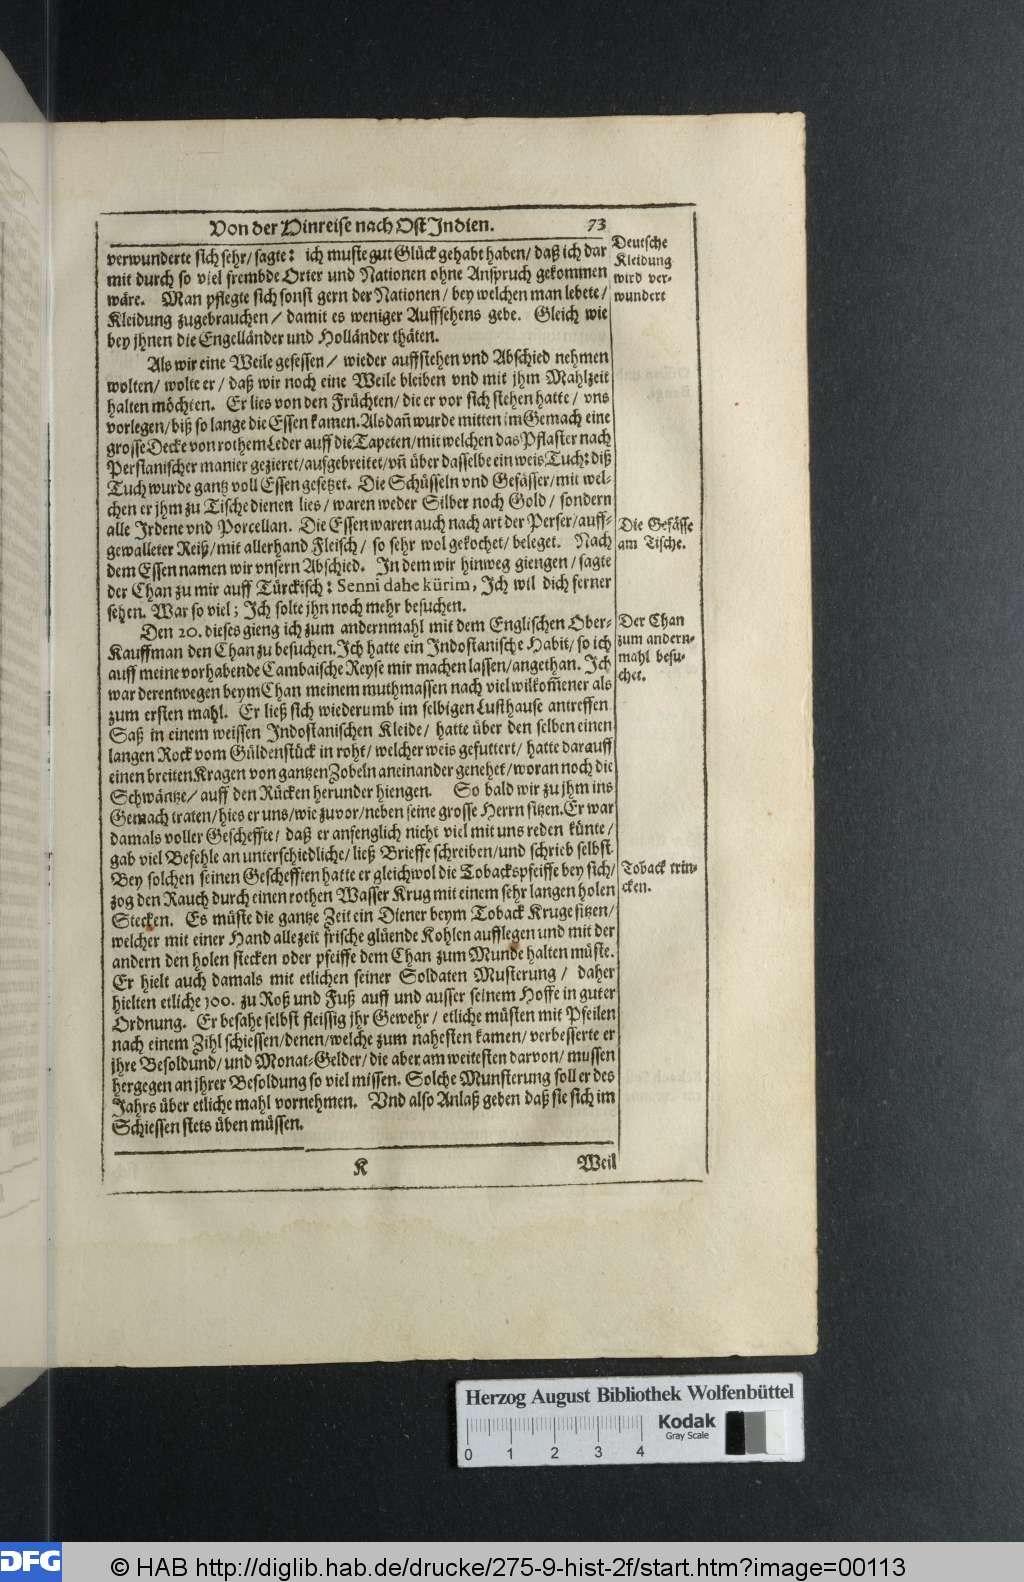 Von der Hinreise nach Ost Indien. 73
verwunderte sich sehr/ sagte: ich muste gut Glück gehabt haben/ daß ich dar
mit durch so viel frembde Orter und Nationen ohne Anspruch gekommen
wäre. Man pflegte sich sonst gern der Nationen/ bey welchen man lebete/
Kleidung zugebrauchen/ damit es weniger Auffsehens gebe. Gleich wie
bey jhnen die Engelländer und Holländer thäten.
Deutsche
Kleidung
wird ver-
wundert
Als wir eine Weile gesessen/ wieder auffstehen vnd Abschied nehmen
wolten/ wolte er/ daß wir noch eine Weile bleiben vnd mit jhm Mahlzeit
halten möchten. Er lies von den Früchten/ die er vor sich stehen hatte/ vns
vorlegen/ biß so lange die Essen kamen. Als dañ wurde mitten im Gemach eine
grosse Decke von rothem Leder auff die Tapeten/ mit welchen das Pflaster nach
Persianischer manier gezieret/ aufgebreitet/ vñ über dasselbe ein weis Tuch: diß
Tuch wurde gantz voll Essen gesetzet. Die Schüsseln vnd Gefässer/ mit wel-
chen er jhm zu Tische dienen lies/ waren weder Silber noch Gold/ sondern
alle Irdene vnd Porcellan. Die Essen waren auch nach art der Perser/ auff-
gewalleter Reiß/ mit allerhand Fleisch/ so sehr wol gekochet/ beleget. Nach
dem Essen namen wir vnsern Abschied. In dem wir hinweg giengen/ sagte
der Chan zu mir auff Türckisch: Senni dahe kürim, Ich wil dich ferner
sehen. War so viel; Ich solte jhn noch mehr besuchen.
Die Gefässe
am Tische.
Den 20. dieses gieng ich zum andernmahl mit dem Englischen Ober-
Kauffman den Chan zu besuchen. Ich hatte ein Indostanische Habit/ so ich
auff meine vorhabende Cambaische Reyse mir machen lassen/ angethan. Ich
war derentwegen beym Chan meinem muthmassen nach viel wilkom̃ener als
zum ersten mahl. Er ließ sich wiederumb im selbigen Lusthause antreffen
Saß in einem weissen Indostanischen Kleide/ hatte über den selben einen
langen Rock vom Güldenstück in roht/ welcher weis gefuttert/ hatte darauff
einen breiten Kragen von gantzen Zobeln aneinander genehet/ woran noch die
Schwäntze/ auff den Rücken herunder hiengen. So bald wir zu jhm ins
Gemach traten/ hies er uns/ wie zuvor/ neben seine grosse Herrn sitzen. Er war
damals voller Gescheffte/ daß er anfenglich nicht viel mit uns reden künte/
gab viel Befehle an unterschiedliche/ ließ Brieffe schreiben/ und schrieb selbst
Bey solchen seinen Geschefften hatte er gleichwol die Tobackspfeiffe bey sich/
zog den Rauch durch einen rothen Wasser Krug mit einem sehr langen holen
Stecken. Es müste die gantze Zeit ein Diener beym Toback Kruge sitzen/
welcher mit einer Hand allezeit frische glüende Kohlen aufflegen und mit der
andern den holen stecken oder pfeiffe dem Chan zum Munde halten müste.
Er hielt auch damals mit etlichen seiner Soldaten Musterung/ daher
hielten etliche 100. zu Roß und Fuß auff und ausser seinem Hoffe in guter
Ordnung. Er besahe selbst fleissig jhr Gewehr/ etliche müsten mit Pfeilen
nach einem Zihl schiessen/ denen/ welche zum nahesten kamen/ verbesserte er
jhre Besoldund/ und Monat-Gelder/ die aber am weitesten darvon/ mussen
hergegen an jhrer Besoldung so viel missen. Solche Munsterung soll er des
Jahrs über etliche mahl vornehmen. Vnd also Anlaß geben daß sie sich im
Schiessen stets üben müssen.
Der Chan
zum andern-
mahl besu-
chet.
Toback trin-
cken.
K Weil
Herzog August Bibliothek Wolfenbüttel
0 1 2 3 4
Kodak
Gray Scale
DFG
© HAB http://diglib.hab.de/drucke/275-9-hist-2f/start.htm?image=00113